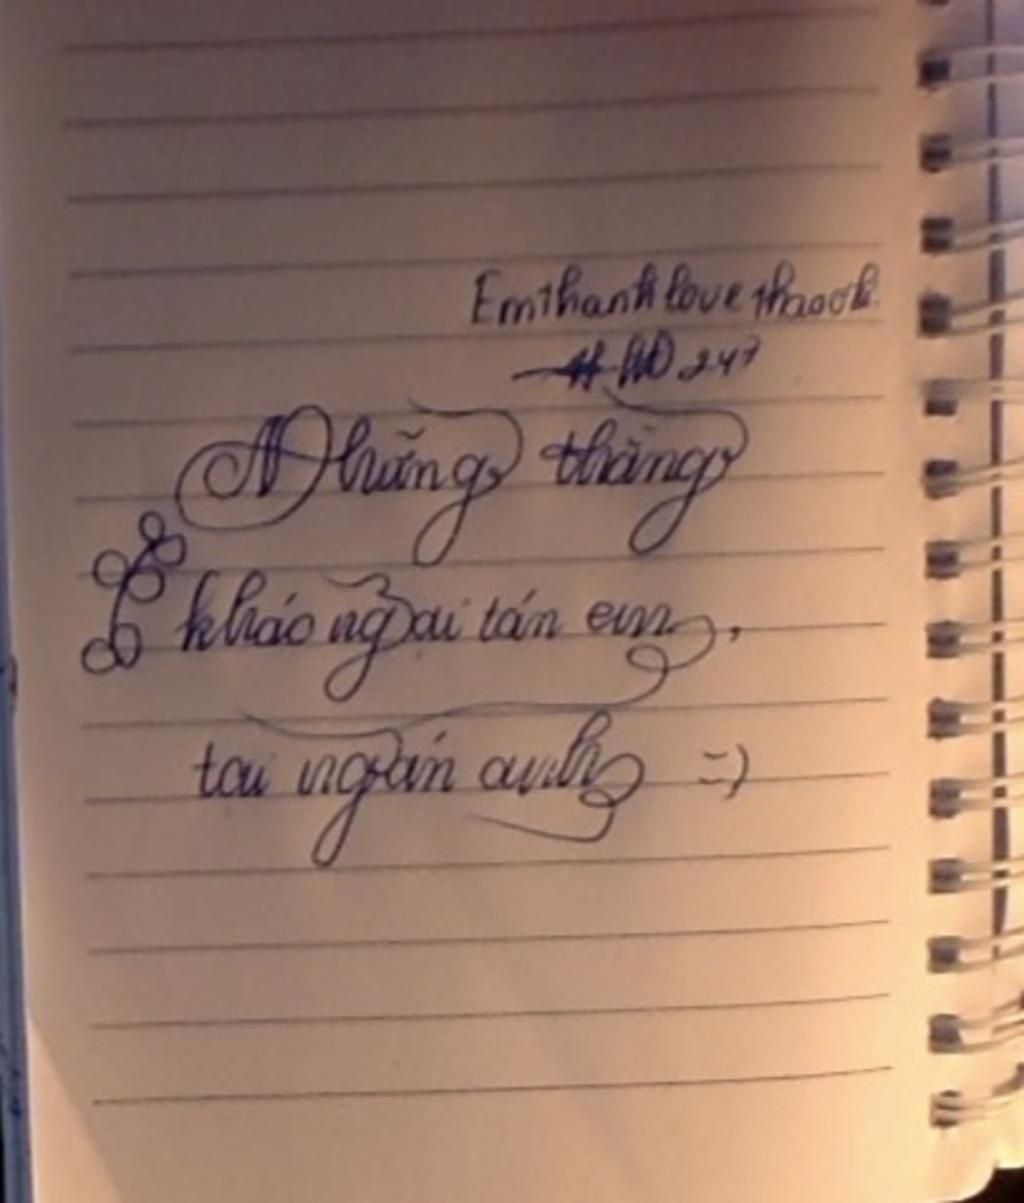 Emthanh love thaooh.
247
Những thằng
kháo ngại tán em,
tai ngán anh =)